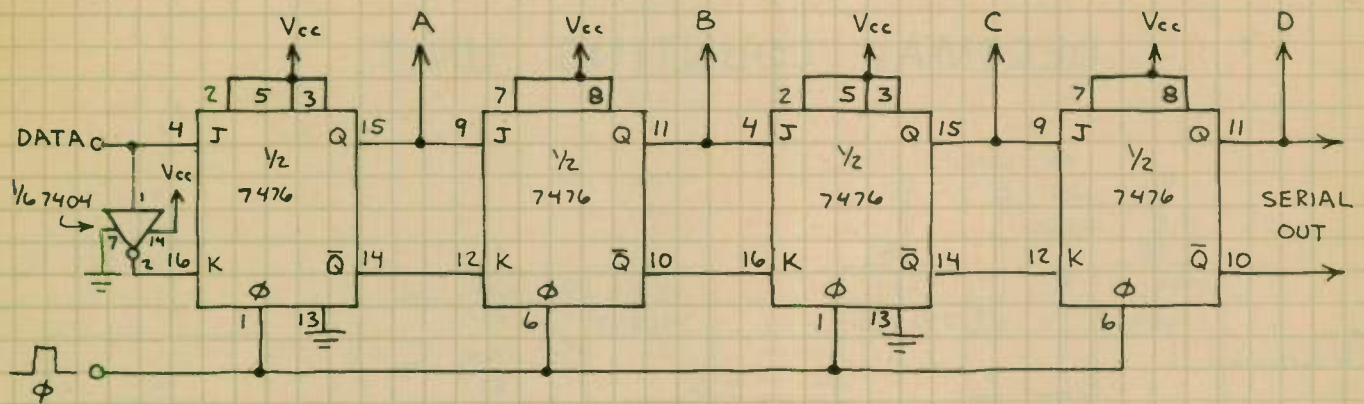 Vcc A Vcc B Vcc C Vcc D
2 5 3 7 8 2 5 3 7 8
DATA 4 J Q 15 9 J Q 11 4 J Q 15 9 J Q 11
1/2 1/2 1/2 1/2
Vcc
1/6 7404 1 7476 7476 7476 7476 SERIAL
7 14 OUT
2 16 K Q̅ 14 12 K Q̅ 10 16 K Q̅ 14 12 K Q̅ 10
Φ Φ Φ Φ
1 13 6 1 13 6
Φ